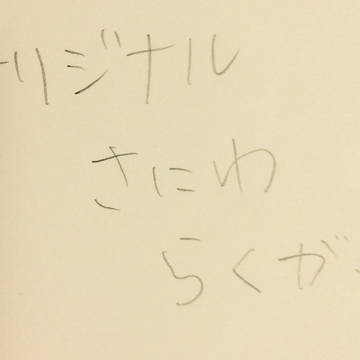 リジナル
さにわ
らくが